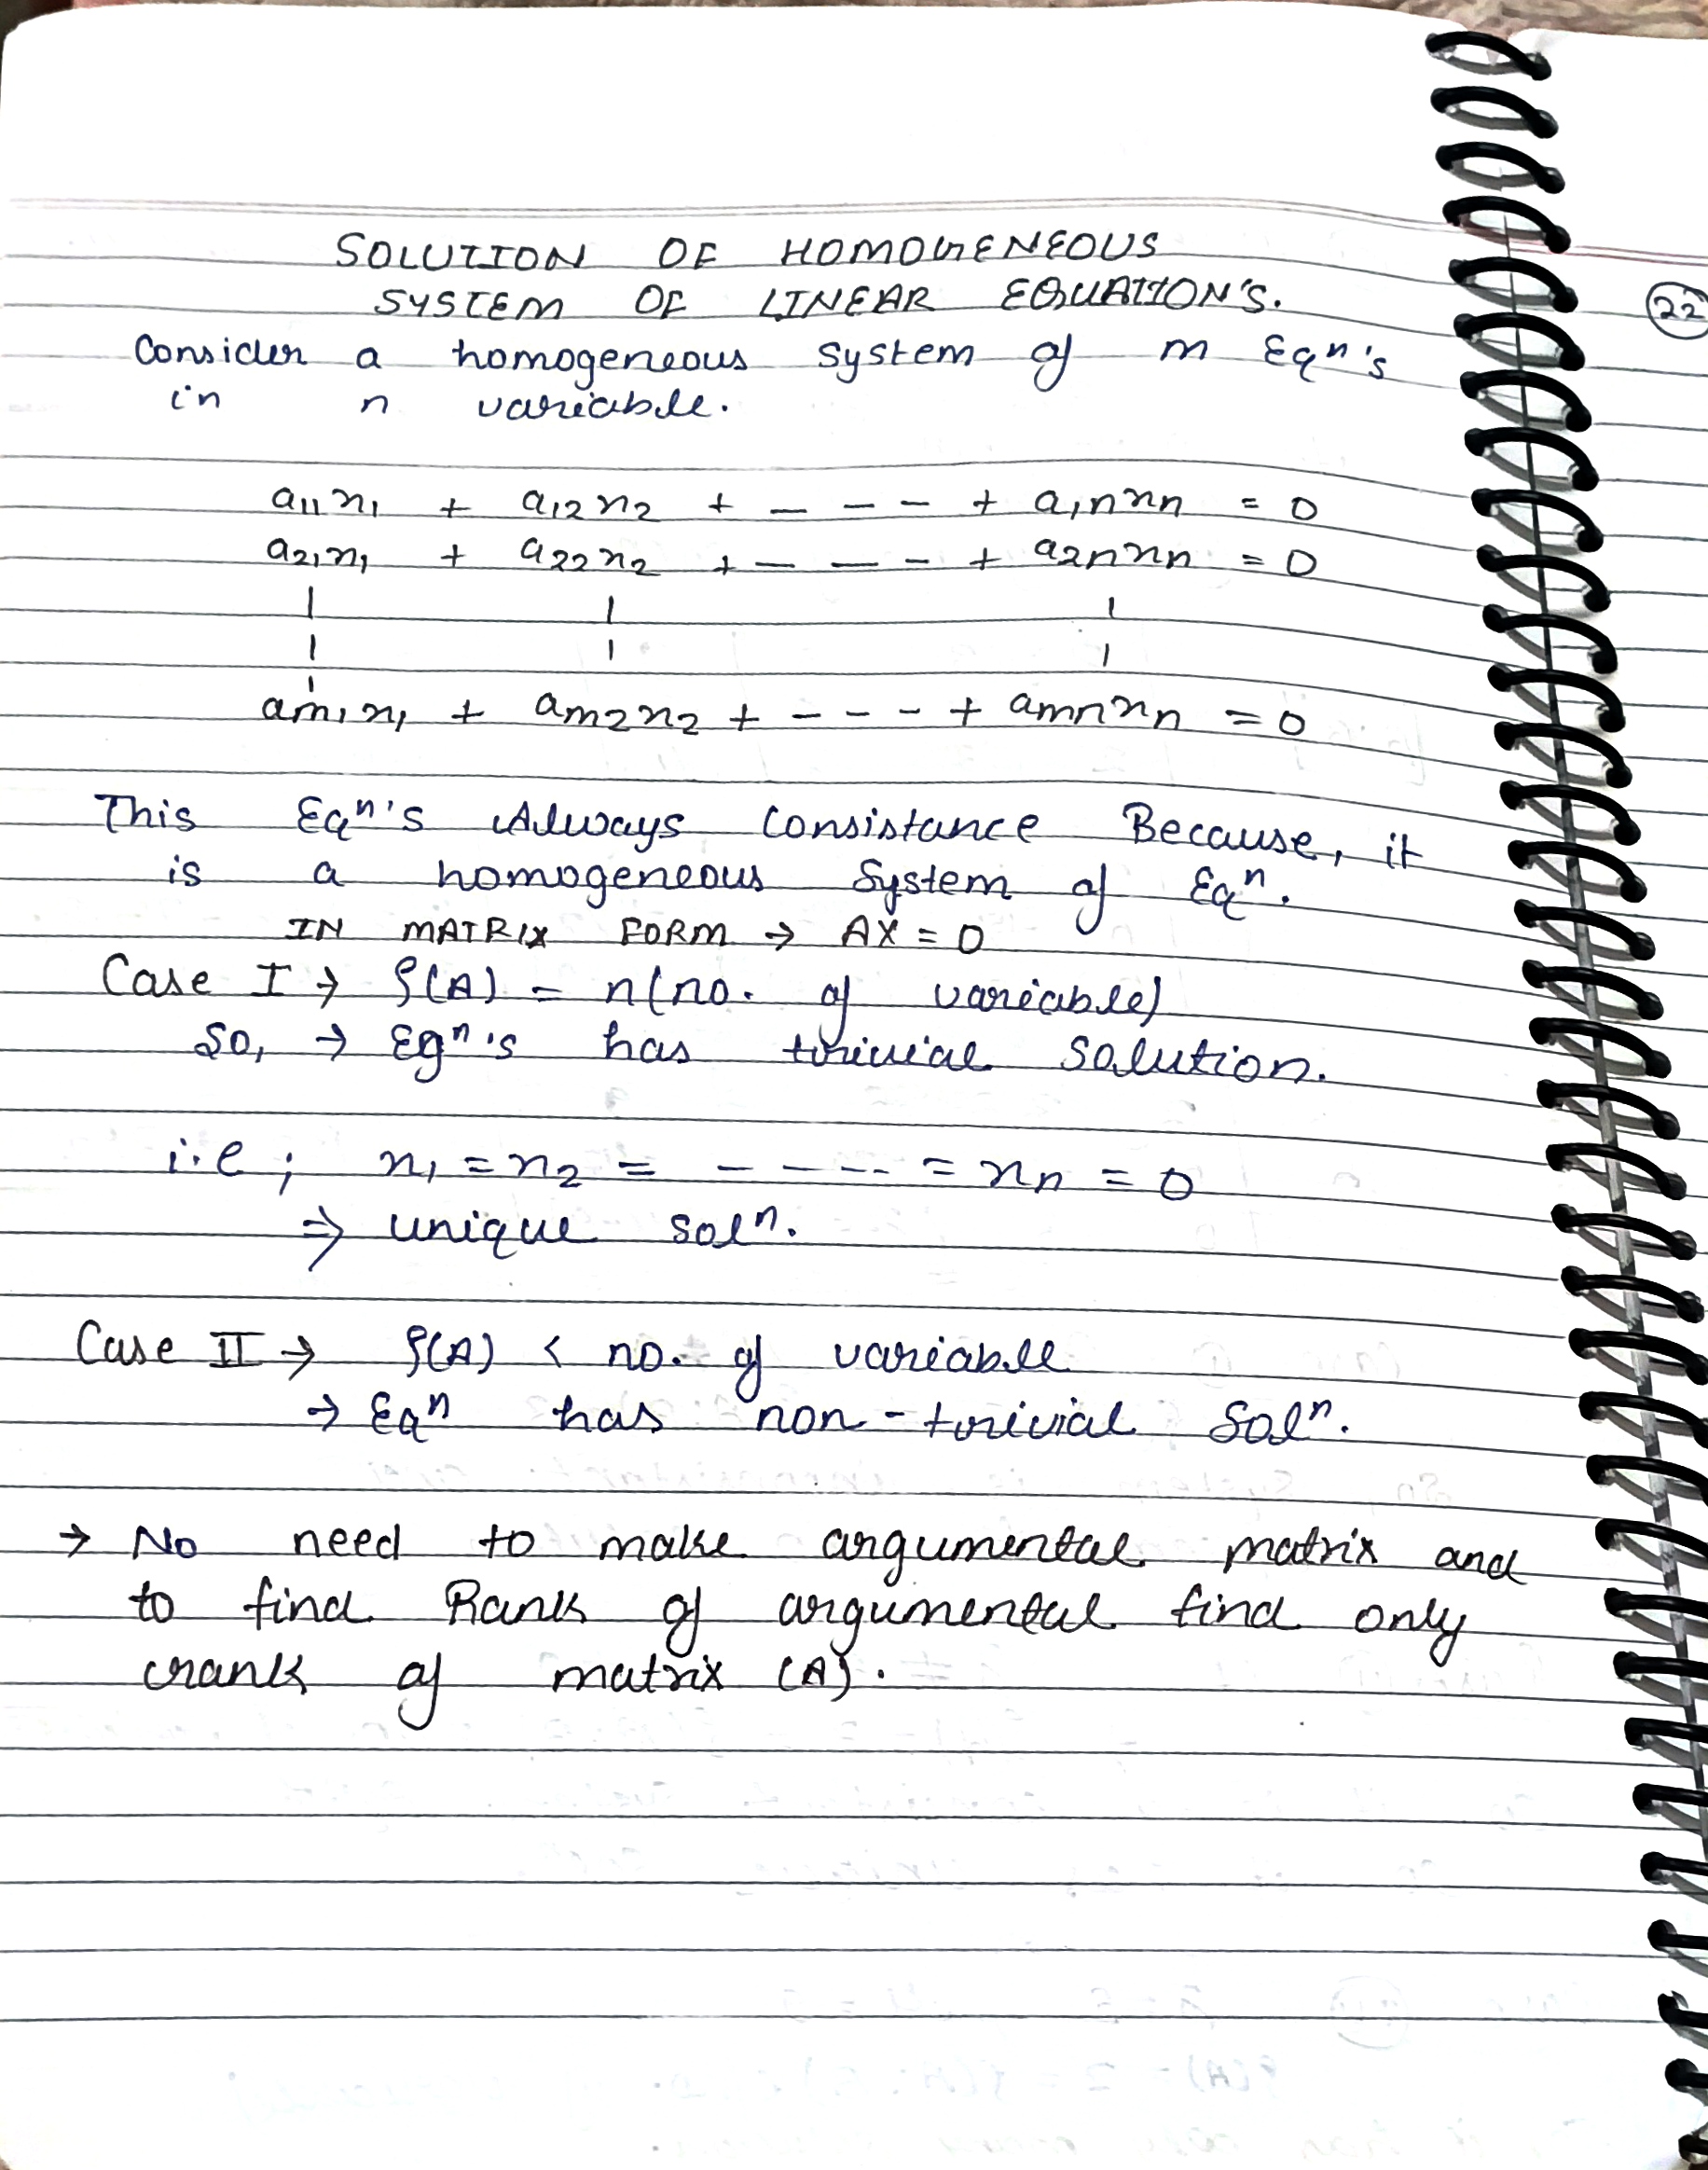 SOLUTION OF HOMOGENEOUS
SYSTEM OF LINEAR EQUATION'S.
22
Consider a homogeneous system of m Eqⁿ's
in n variable.
a₁₁x₁ + a₁₂x₂ + - - - + a₁ₙxₙ = 0
a₂₁x₁ + a₂₂x₂ + - - - + a₂ₙxₙ = 0
am₁x₁ + am₂x₂ + - - - - + amnxₙ = 0
This Eqⁿ's Always Consistance Because, it
is a homogeneous System of Eqⁿ.
IN MATRIX FORM → AX = 0
Case I → ρ(A) = n(no. of variable)
So, → Eqⁿ's has trivial solution.
i.e ; x₁ = x₂ = - - - - = xₙ = 0
⇒ unique solⁿ.
Case II → ρ(A) < no. of variable
→ Eqⁿ has non-trivial Solⁿ.
→ No need to make argumental matrix and
to find Rank of argumental find only
rank of matrix (A).